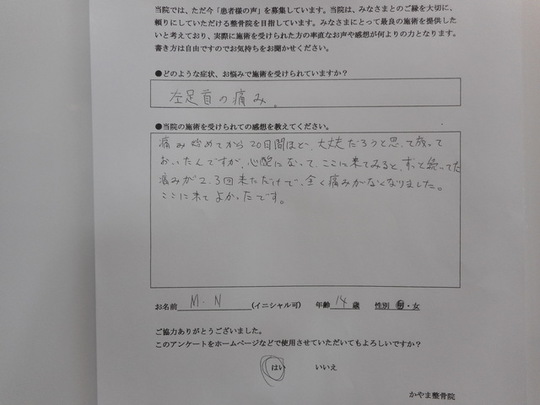 当院では、ただ今「患者様の声」を募集しています。当院は、みなさまとのご縁を大切に、
頼りにしていただける整骨院を目指しています。みなさまにとって最良の施術を提供した
いと考えており、実際に施術を受けられた方の率直なお声や感想が何よりの力となります。
書き方は自由ですのでお気持ちをお聞かせください。
●どのような症状、お悩みで施術を受けられていますか？
左足首の痛み。
●当院の施術を受けられての感想を教えてください。
痛み始めてから20日間ほど、大丈夫だろうと思って放って
おいたんですが、心配になって、ここに来てみると、ずっと続いてた
痛みが2、3回来ただけで、全く痛みがなくなりました。
ここに来てよかったです。
お名前 M.N (イニシャル可) 年齢 14 歳 性別 男・女
ご協力ありがとうございました。
このアンケートをホームページなどで使用させていただいてもよろしいですか？
はい いいえ
かやま整骨院